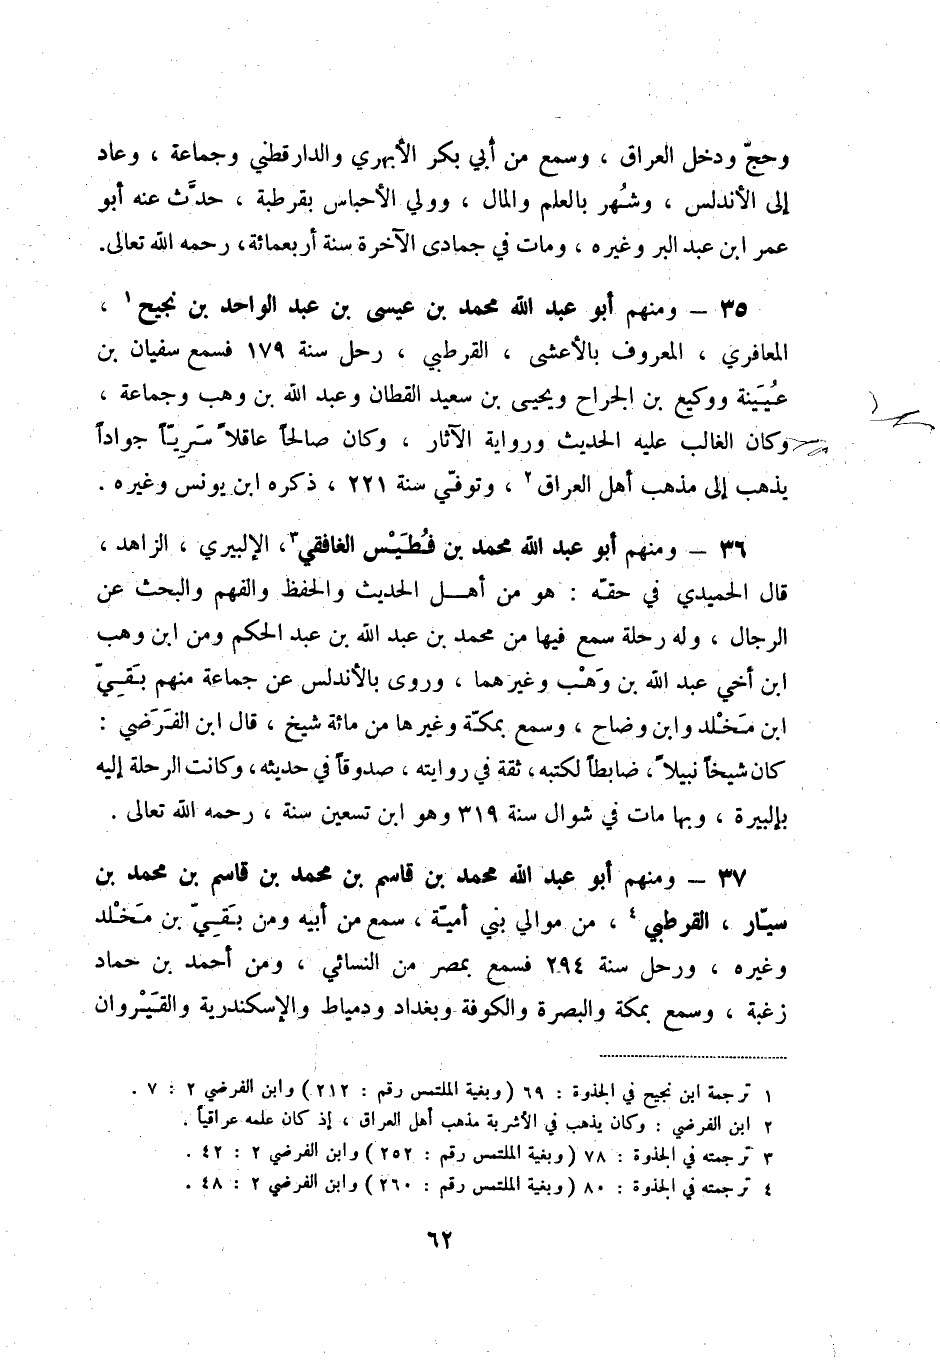 وحجّ ودخل العراق ، وسمع من أبي بكر الأبهري والدارقطني وجماعة ، وعاد
إلى الأندلس ، وشُهر بالعلم والمال ، وولي الأحباس بقرطبة ، حدَّث عنه أبو
عمر ابن عبد البر وغيره ، ومات في جمادى الآخرة سنة أربعمائة، رحمه الله تعالى.
٣٥ – ومنهم أبو عبد الله محمد بن عيسى بن عبد الواحد بن نجيح ١ ،
المعافري ، المعروف بالأعشى ، القرطبي ، رحل سنة ١٧٩ فسمع سفيان بن
عُيَيَنة ووكيع بن الجراح ويحيى بن سعيد القطان وعبد الله بن وهب وجماعة ،
وكان الغالب عليه الحديث ورواية الآثار ، وكان صالحاً عاقلاً سَرِيّاً جواداً
يذهب إلى مذهب أهل العراق ٢ ، وتوفّي سنة ٢٢١ ، ذكره ابن يونس وغيره .
٣٦ – ومنهم أبو عبد الله محمد بن فُطَيْس الغافقي ٣، الإلبيري ، الزاهد ،
قال الحميدي في حقّه : هو من أهل الحديث والحفظ والفهم والبحث عن
الرجال ، وله رحلة سمع فيها من محمد بن عبد الله بن عبد الحكم ومن ابن وهب
ابن أخي عبد الله بن وَهْب وغيرهما ، وروى بالأندلس عن جماعة منهم بَقيّ
ابن مَخْلد وابن وضاح ، وسمع بمكّة وغيرها من مائة شيخ ، قال ابن الفَرَضي :
كان شيخاً نبيلاً ، ضابطاً لكتبه، ثقة في روايته ، صدوقاً في حديثه، وكانت الرحلة إليه
بإلبيرة ، وبها مات في شوال سنة ٣١٩ وهو ابن تسعين سنة ، رحمه الله تعالى .
٣٧ – ومنهم أبو عبد الله محمد بن قاسم بن محمد بن قاسم بن محمد بن
سيّار ، القرطبي ٤ ، من موالي بني أميّة ، سمع من أبيه ومن بَقيّ بن مَخْلد
وغيره ، ورحل سنة ٢٩٤ فسمع بمصر من النسائي ، ومن أحمد بن حماد
زغبة ، وسمع بمكة والبصرة والكوفة وبغداد ودمياط والإسكندرية والقَيْروان
١ ترجمة ابن نجيح في الجذوة : ٦٩ (وبغية الملتمس رقم : ٢١٢) وابن الفرضي ٢ : ٧ .
٢ ابن الفرضي : وكان يذهب في الأشربة مذهب أهل العراق ، إذ كان علمه عراقياً .
٣ ترجمته في الجذوة : ٧٨ (وبغية الملتمس رقم : ٢٥٢) وابن الفرضي ٢ : ٤٢ .
٤ ترجمته في الجذوة : ٨٠ (وبغية الملتمس رقم : ٢٦٠) وابن الفرضي ٢ : ٤٨ .
٦٢